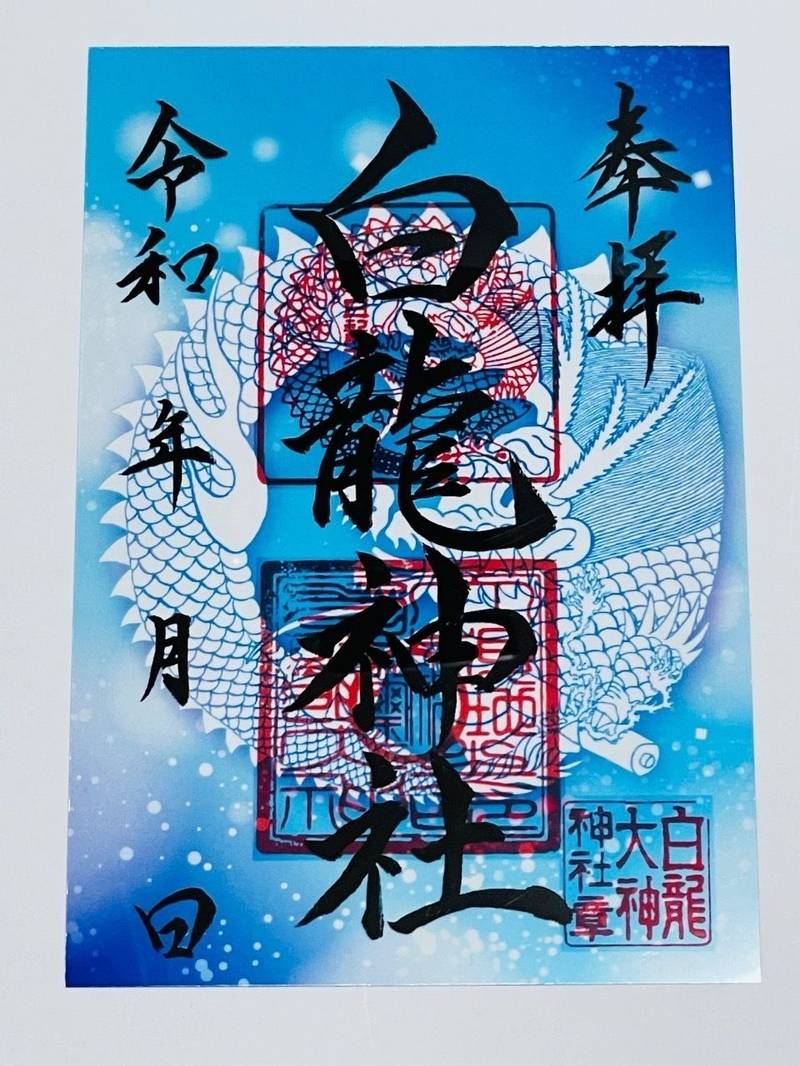 奉拝
白龍神社
令和 年 月 日
白龍
大神
神社章